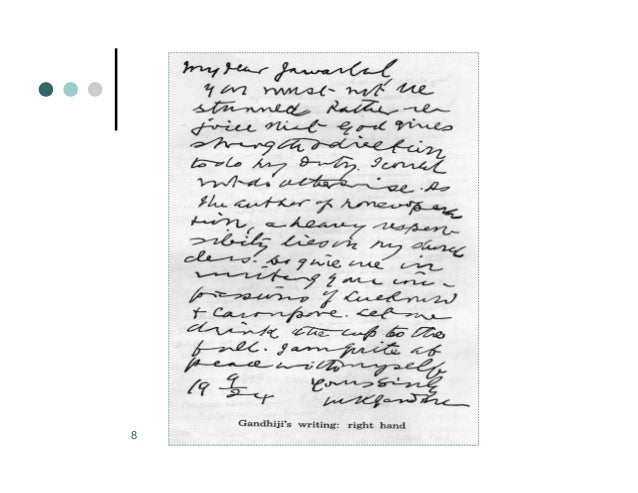 My dear Jawarlal
you must not be
stunned. Rather re
joice that God gives
strength & direction
to do my Duty. I could
not do otherwise. As
the author of noncoopera
tion, a heavy respon
sibility lies on my shoul
ders. Do give me in
writing your im-
pressions of Lucknow
& Cawnpore. Let me
drink the cup to the
full. I am quite at
peace with myself
Yours Sincly
19 9/24
MKGandhi
Gandhiji's writing: right hand
8